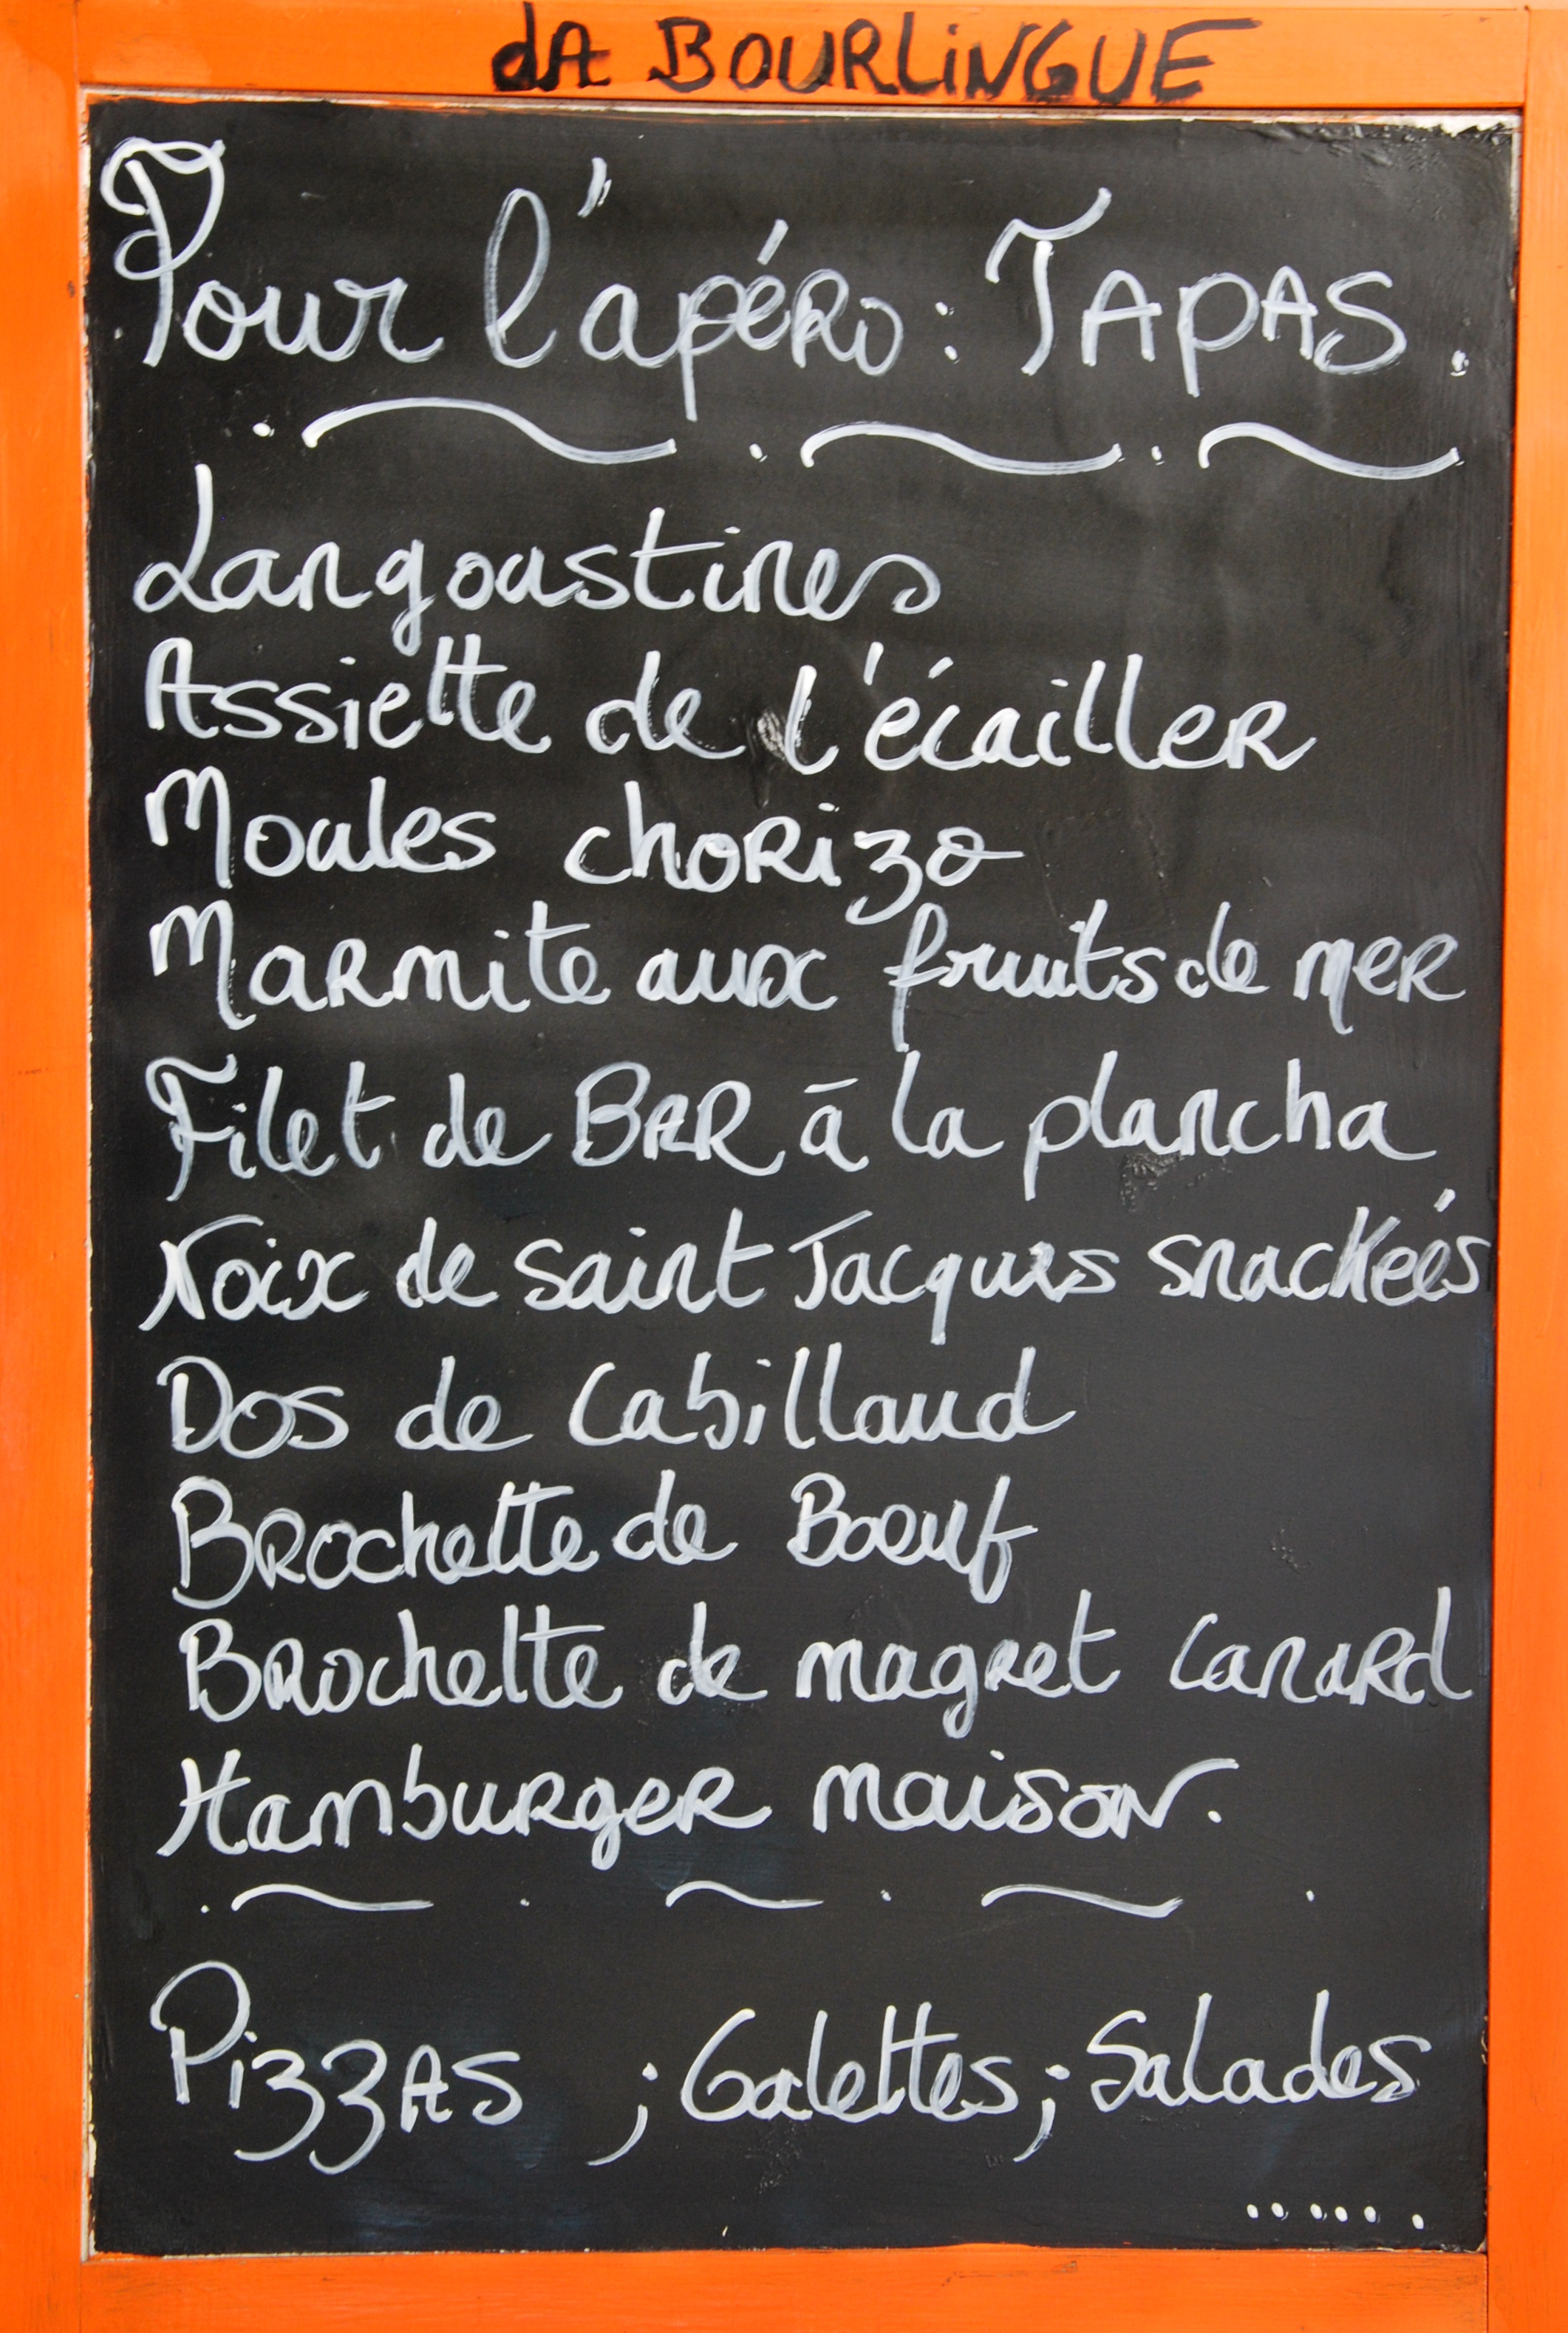 dA BOURLiNGUE
Pour l'apéro : TAPAS.
Langoustines
Assiette de l'écailler
Moules chorizo
Marmite aux fruits de mer
Filet de BAR à la plancha
Noix de saint Jacques snackées
Dos de Cabillaud
Brochette de Boeuf
Brochette de magret Canard
Hamburger maison.
Pizzas ; Galettes ; Salades
......